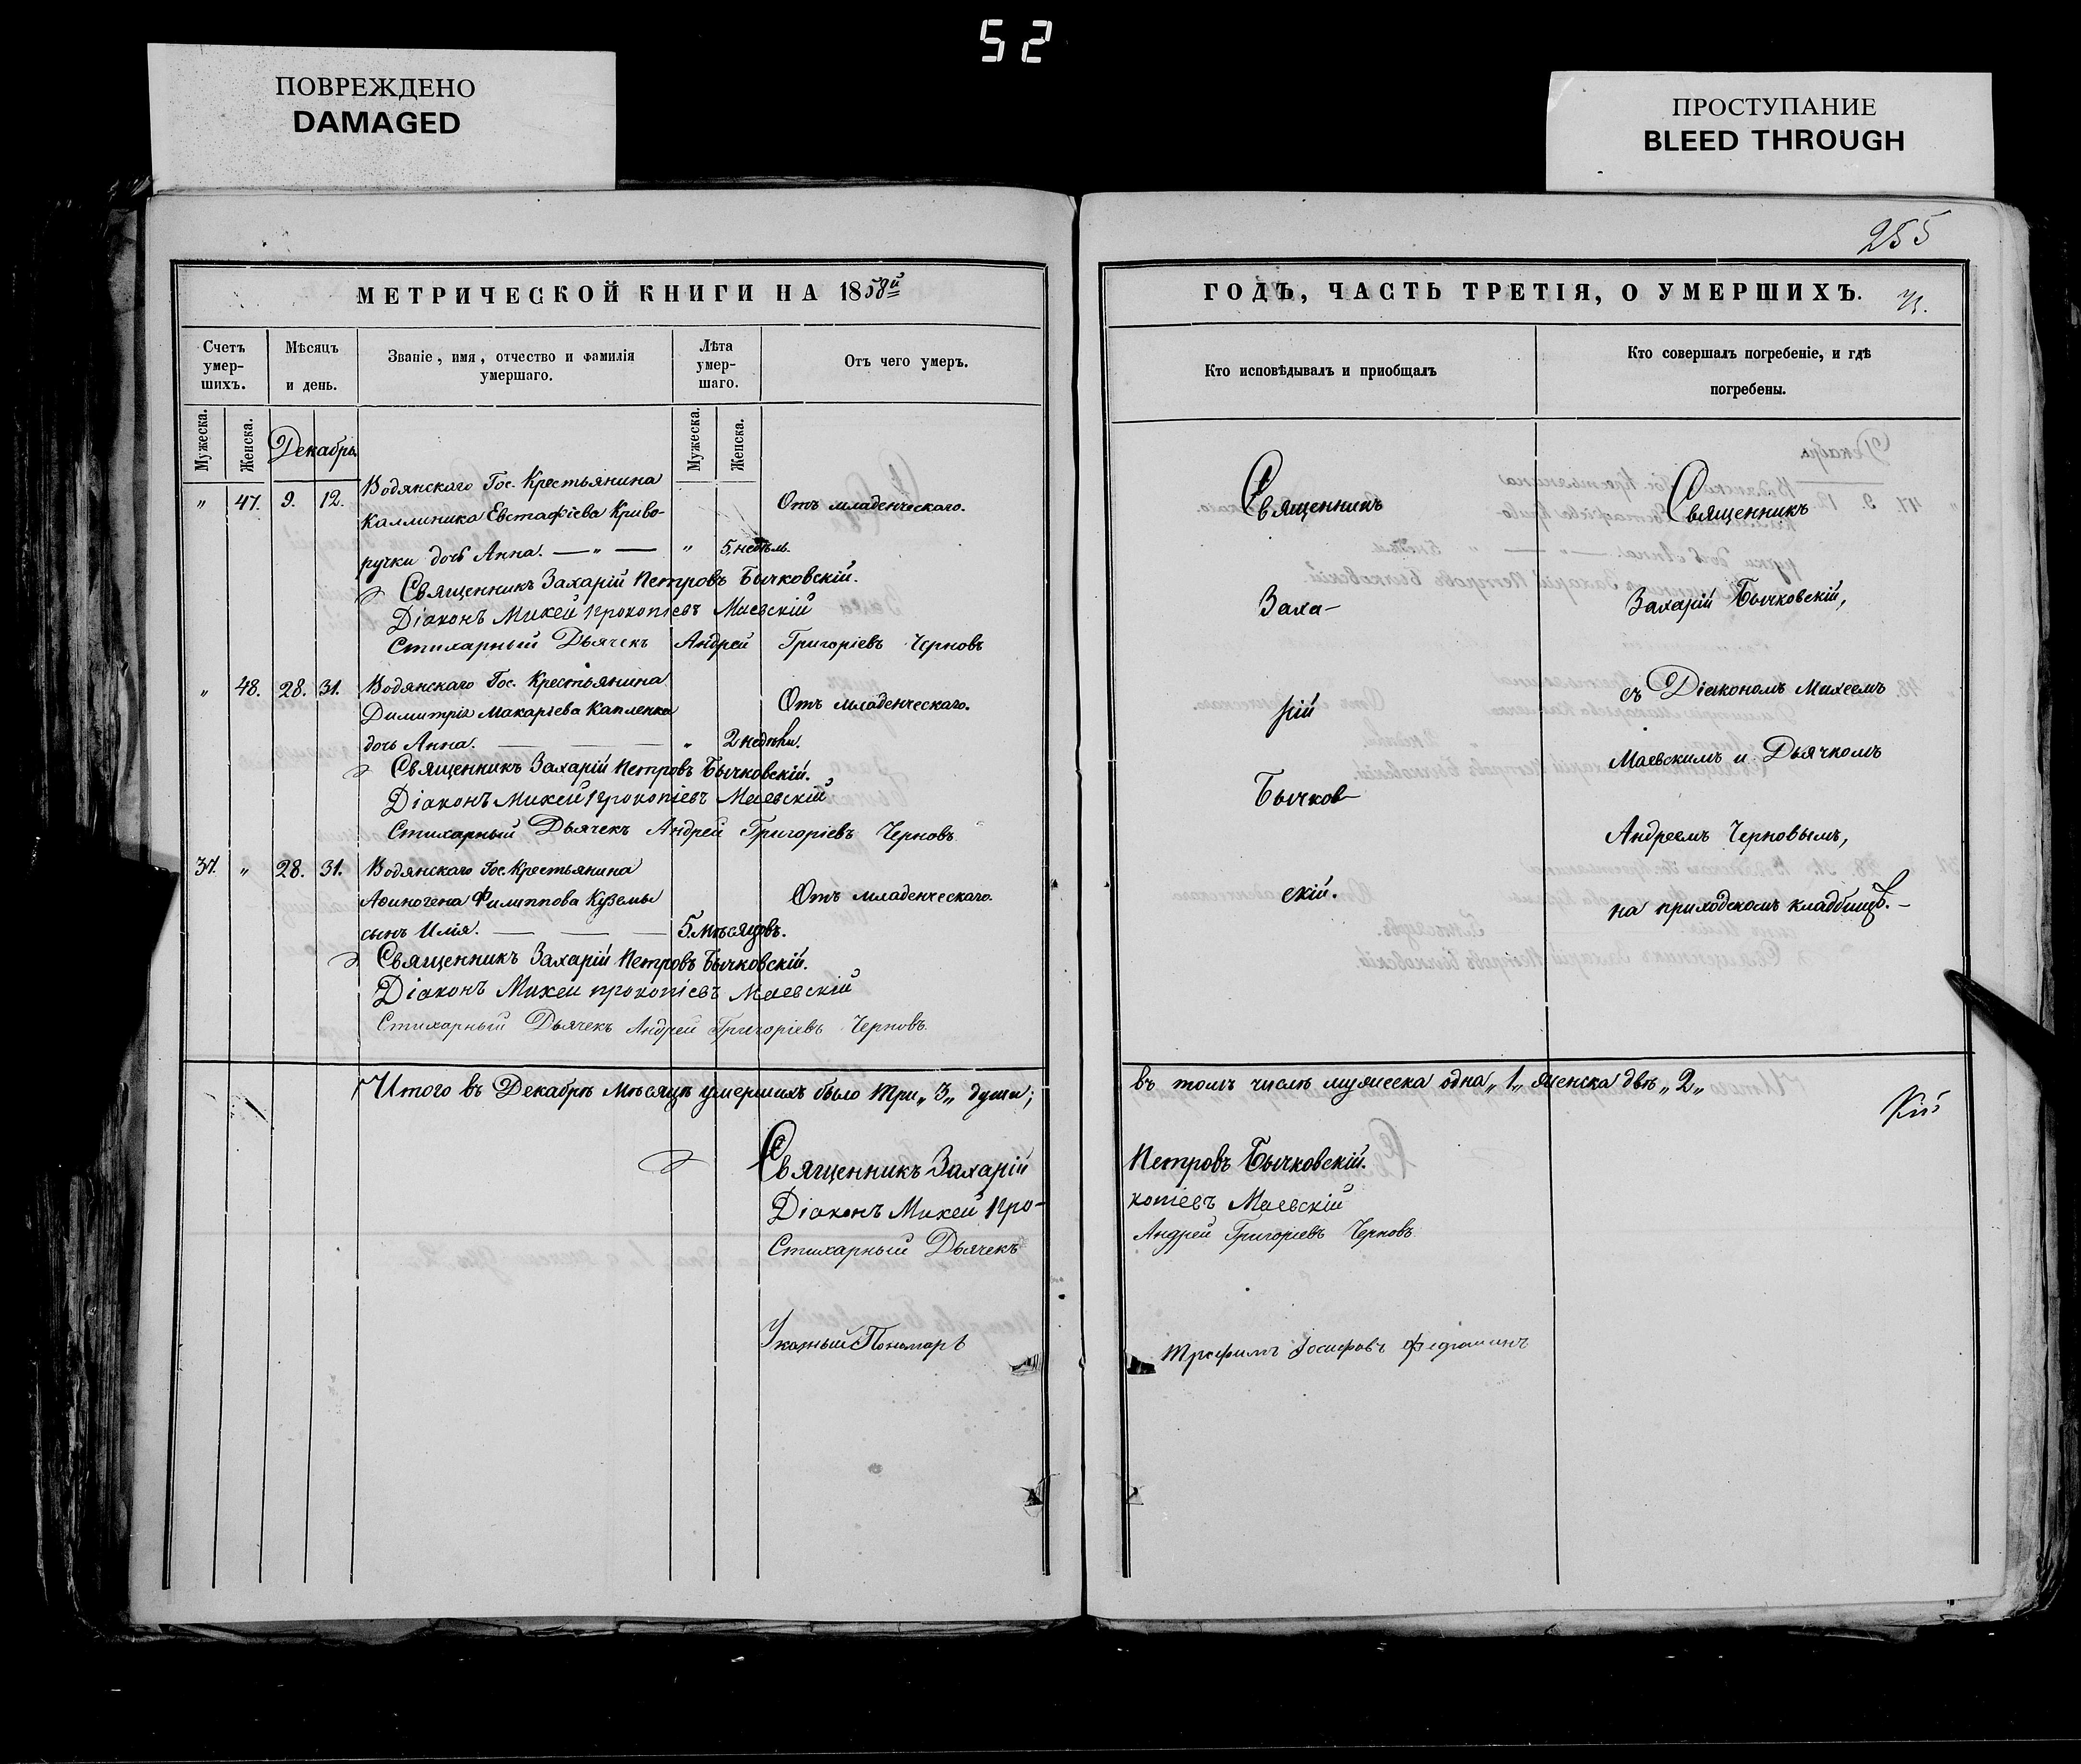 52
ПОВРЕЖДЕНО
DAMAGED
ПРОСТУПАНИЕ
BLEED THROUGH
255
МЕТРИЧЕСКОЙ КНИГИ НА 1858й
Счетъ умер-шихъ.
Мѣсяцъ и день.
Званіе, имя, отчество и фамилія умершаго.
Лѣта умер-шаго.
Отъ чего умеръ.
Мужеска.
Женска.
Декабрь
Мужеска.
Женска.
Водянскаго Гос. Крестьянина
" 47. 9. 12. Каллиника Евстафіева Криво- Отъ младенческаго.
ручки дочь Анна. — " — " 5 недѣль.
Священникъ Захарій Петровъ Бычковскій.
Діаконъ Михей Прокопіевъ Маевскій
Стихарный Дьячекъ Андрей Григоріевъ Черновъ
" 48. 28. 31. Водянскаго Гос. Крестьянина
Димитрія Макарьева Капленка Отъ младенческаго.
дочь Анна. — — " 2 недѣли.
Священникъ Захарій Петровъ Бычковскій.
Діаконъ Михей Прокопіевъ Маевскій
Стихарный Дьячекъ Андрей Григоріевъ Черновъ
37. " 28. 31. Водянскаго Гос. Крестьянина
Аѳиногена Филиппова Куземы Отъ младенческаго.
сынъ Илія. — — — 5. мѣсяцовъ.
Священникъ Захарій Петровъ Бычковскій.
Діаконъ Михей Прокопіевъ Маевскій
Стихарный Дьячекъ Андрей Григоріевъ Черновъ
Итого въ Декабрѣ мѣсяцѣ умершихъ было три „3„ души;
Священникъ Захарій
Діаконъ Михей Про-
Стихарный Дьячекъ
Указный Пономарь
ГОДЪ, ЧАСТЬ ТРЕТІЯ, О УМЕРШИХЪ.
Кто исповѣдывалъ и приобщалъ
Кто совершалъ погребеніе, и гдѣ
погребены.
Священникъ
Заха-
рій
Бычков-
скій.
Священникъ
Захарій Бычковскій,
съ Діакономъ Михеемъ
Маевскимъ и Дьячкомъ
Андреемъ Черновымъ,
на приходскомъ кладбищѣ. –
въ томъ числѣ мужеска одна „1„ женска двѣ „2„
Кій
Петровъ Бычковскій.
копіевъ Маевскій
Андрей Григоріевъ Черновъ
Трофимъ Іосифовъ